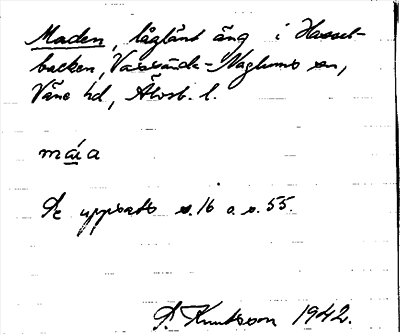 Maden, låglänt äng i Hassel-
backen, Vassända-Naglums sn,
Väne hd, Älvsb. l.
måa
Se uppsats s. 16 o. s. 55.
P. Knutsson 1942.